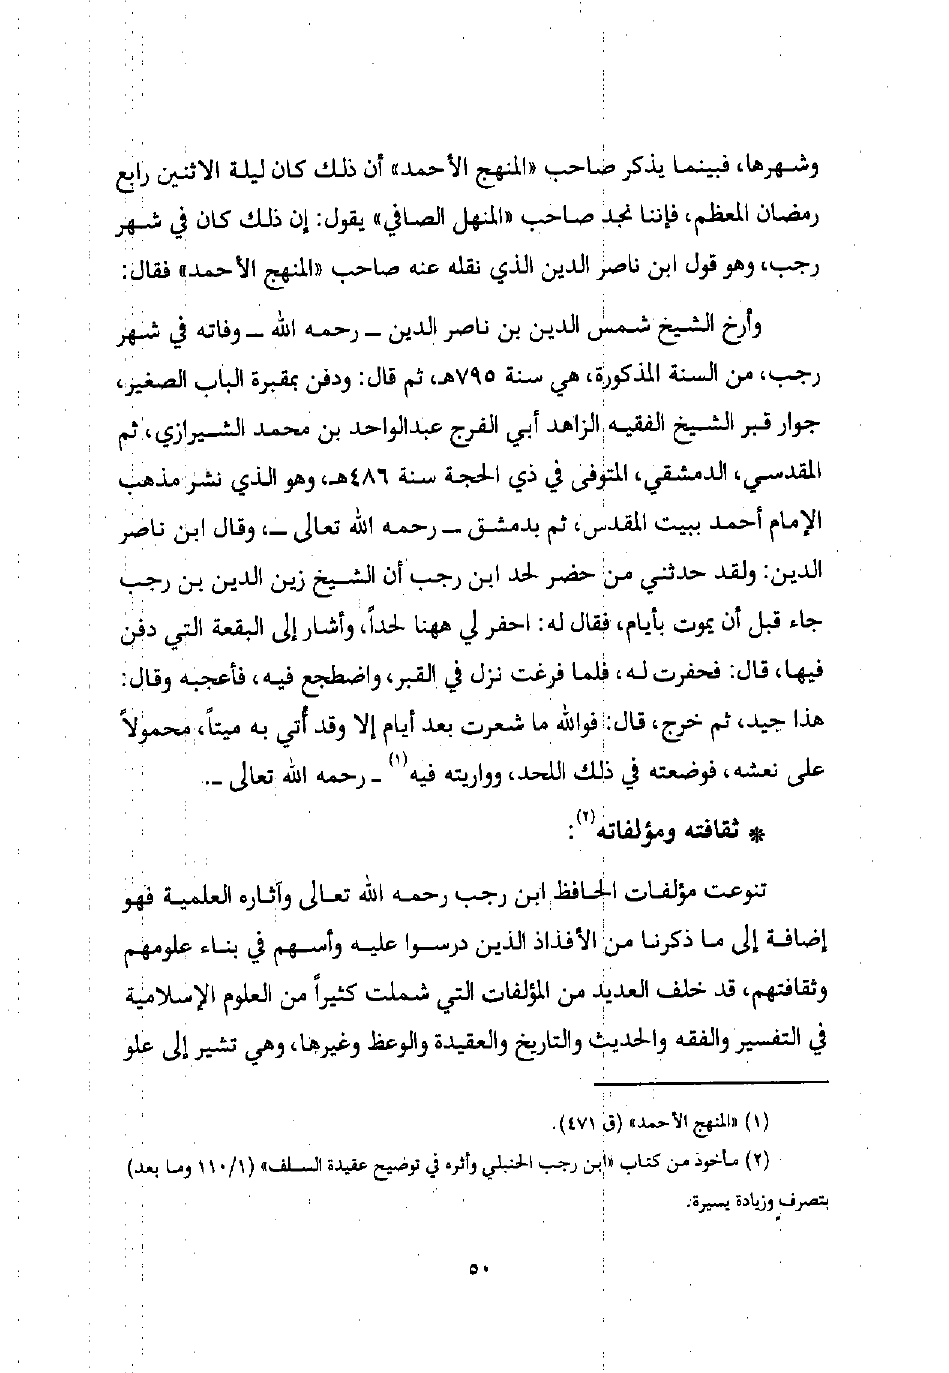 وشهرها، فبينما يذكر صاحب «المنهج الأحمد» أن ذلك كان ليلة الاثنين رابع
رمضان المعظم، فإننا نجد صاحب «المنهل الصافي» يقول: إن ذلك كان في شهر
رجب، وهو قول ابن ناصر الدين الذي نقله عنه صاحب «المنهج الأحمد» فقال:
وأرخ الشيخ شمس الدين بن ناصر الدين ـ رحمه الله ـ وفاته في شهر
رجب، من السنة المذكورة، هي سنة ٧٩٥هـ، ثم قال: ودفن بمقبرة الباب الصغير،
جوار قبر الشيخ الفقيه الزاهد أبي الفرج عبدالواحد بن محمد الشيرازي، ثم
المقدسي، الدمشقي، المتوفى في ذي الحجة سنة ٤٨٦هـ، وهو الذي نشر مذهب
الإمام أحمد ببيت المقدس، ثم بدمشق ـ رحمه الله تعالى ـ، وقال ابن ناصر
الدين: ولقد حدثني من حضر لحد ابن رجب أن الشيخ زين الدين بن رجب
جاء قبل أن يموت بأيام، فقال له: احفر لي ههنا لحداً، وأشار إلى البقعة التي دفن
فيها، قال: فحفرت له، فلما فرغت نزل في القبر، واضطجع فيه، فأعجبه وقال:
هذا جيد، ثم خرج، قال: فوالله ما شعرت بعد أيام إلا وقد أُتي به ميتاً، محمولاً
على نعشه، فوضعته في ذلك اللحد، وواريته فيه(١) ـ رحمه الله تعالى ـ.
* ثقافته ومؤلفاته(٢):
تنوعت مؤلفات الحافظ ابن رجب رحمه الله تعالى وآثاره العلمية فهو
إضافة إلى ما ذكرنا من الأفذاذ الذين درسوا عليه وأسهم في بناء علومهم
وثقافتهم، قد خلف العديد من المؤلفات التي شملت كثيراً من العلوم الإسلامية
في التفسير والفقه والحديث والتاريخ والعقيدة والوعظ وغيرها، وهي تشير إلى علو
(١) «المنهج الأحمد» (ق ٤٧١).
(٢) مأخوذ من كتاب «ابن رجب الحنبلي وأثره في توضيح عقيدة السلف» (١/١١٠ وما بعد)
بتصرف وزيادة يسيرة.
٥٠